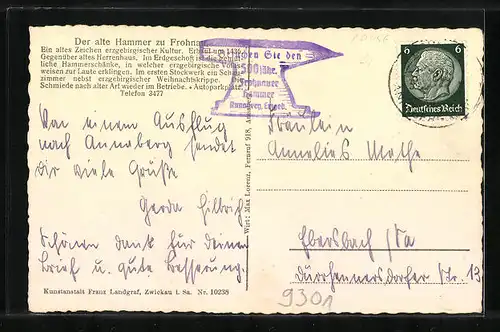 Der alte Hammer zu Frohnau.
Ein altes Zeichen erzgebirgischer Kultur. Erbaut um 1436.
Gegenüber altes Herrenhaus. Im Erdgeschoß ist die
liche Hammerschänke, in welcher erzgebirgische Volks-
weisen zur Laute erklingen. Im ersten Stockwerk ein
zimmer nebst erzgebirgischer Weihnachtskrippe. Die
Schmiede nach alter Art wieder im Betriebe. * Autoparkplatz.
Telefon 3477
Sie den
500jähr.
Frohnauer
Hammer
Annaberg, Erzgeb.
6 6
Deutsches Reich
Von einem Ausflug
nach Annaberg sendet
dir viele Grüße
Gerda
Schönen Dank für deinen
Brief u. gute Besserung.
Kunstanstalt Franz Landgraf, Zwickau i. Sa. Nr. 10238
Wirt: Max Lorenz, Fernruf 918,
Fräulein
Annelies Mothe
Ebersbach/Sa
Dürrhennersdorfer Str. 13
9301